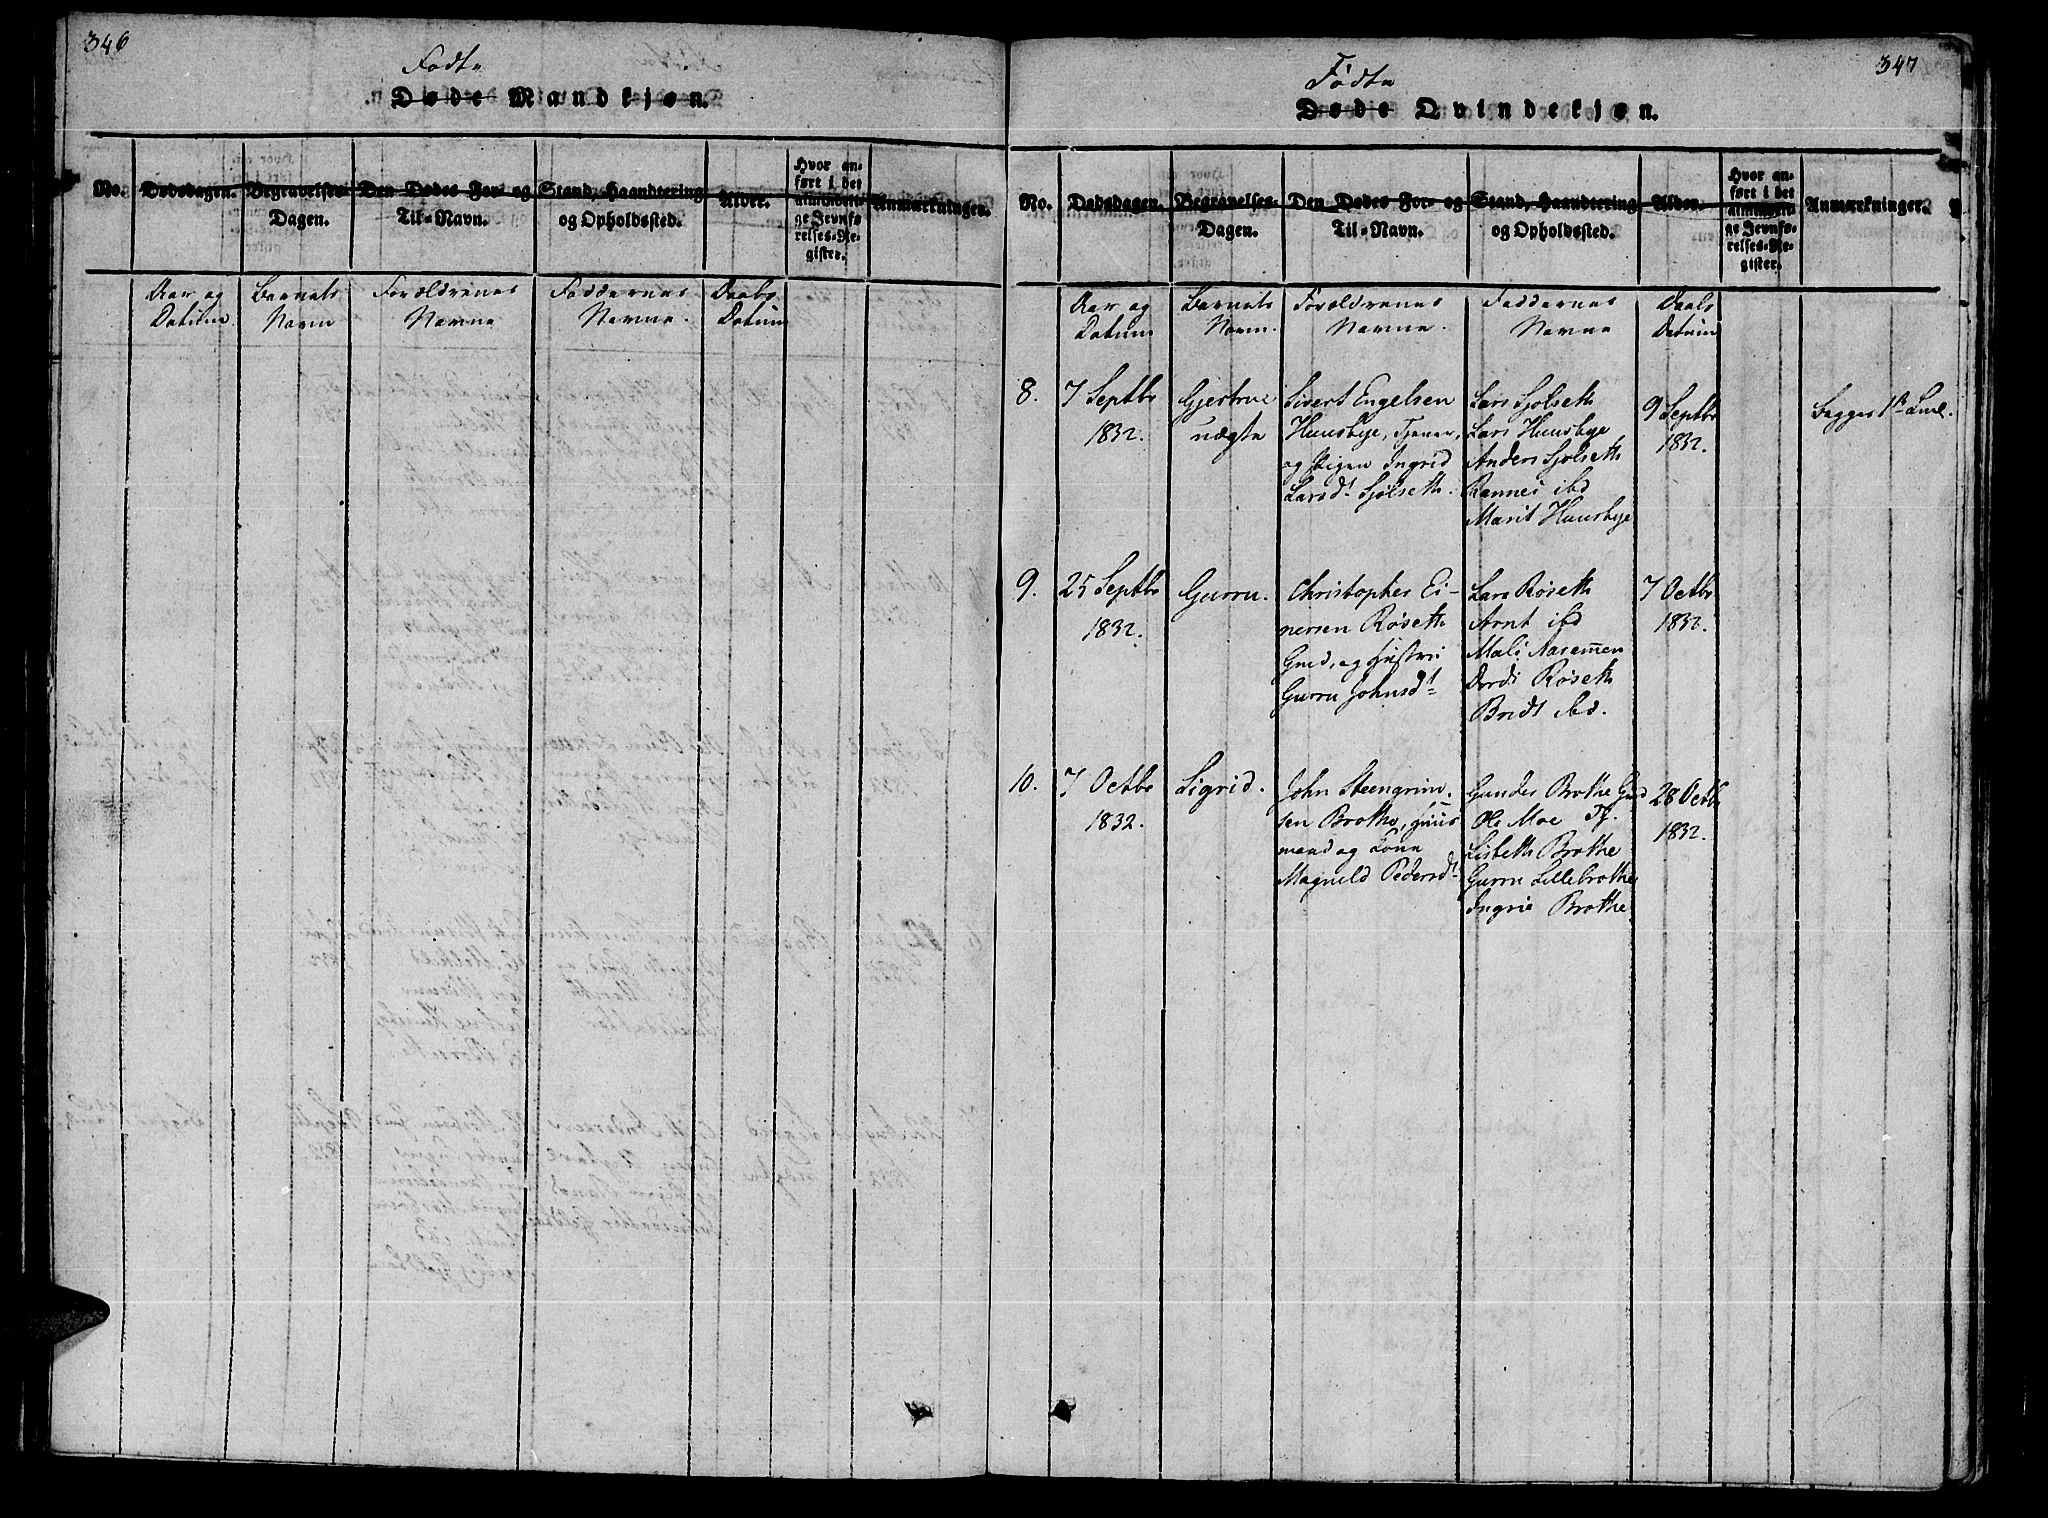 346
Fødte
Døde Mandkjøn.
No.
Dødsdagen.
Begravelses-
Dagen.
Den Dødes For- og
Til-Navn.
Stand, Haandtering
og Opholdssted.
Alder.
Hvor an-
ført i det
almindeli-
ge Jevnfø-
relses-Re-
gister.
Anmærkninger.
Aar og
Datum
Barnets
Navn
Forældrenes
Navne
Faddernes
Navne.
Daabs
Datum
347
Fødte
Døde Qvindekjøn.
No.
Dødsdagen.
Begravelses-
Dagen.
Den Dødes For- og
Til-Navn.
Stand, Haandtering
og Opholdssted.
Alder.
Hvor an-
ført i det
almindeli-
ge Jevnfø-
relses-Re-
gister.
Anmærkninger.
Aar og
Datum
Barnets
Navn.
Forældrenes
Navne.
Faddernes
Navne
Daabs
Datum
8.
7 Septbr
1832.
Gjertrue
uægte
Sivert Engelsen
Huusbye, Tjener,
og Pigen Ingrid
Larsd. Sjølseth.
Lars Sjølseth
Lars Huusbye
Anders Sjølseth
Rannei ibd
Marit Huusbye
9 Septbr
1832.
Begges 1ste Leml.
9.
25 Septbr
1832.
Gurru.
Christopher Ei-
nersen Røseth
Gmd, og Hustru
Gurru Johnsdt
Lars Røseth
Arnt ibd
Mali Aasemmen
Dordi Røseth
Bridt ibd.
7 Octbr
1832.
10.
7 Octbr
1832.
Sigrid.
John Steengrim-
sen Brothe, Huus
mand og Kone
Magnild Pedersdt
Gunder Brothe Gmd
Ole Moe Tj.
Lisbeth Brothe
Gurru Lillebrothe
Ingrie Brothe
28 Octbr
1832.